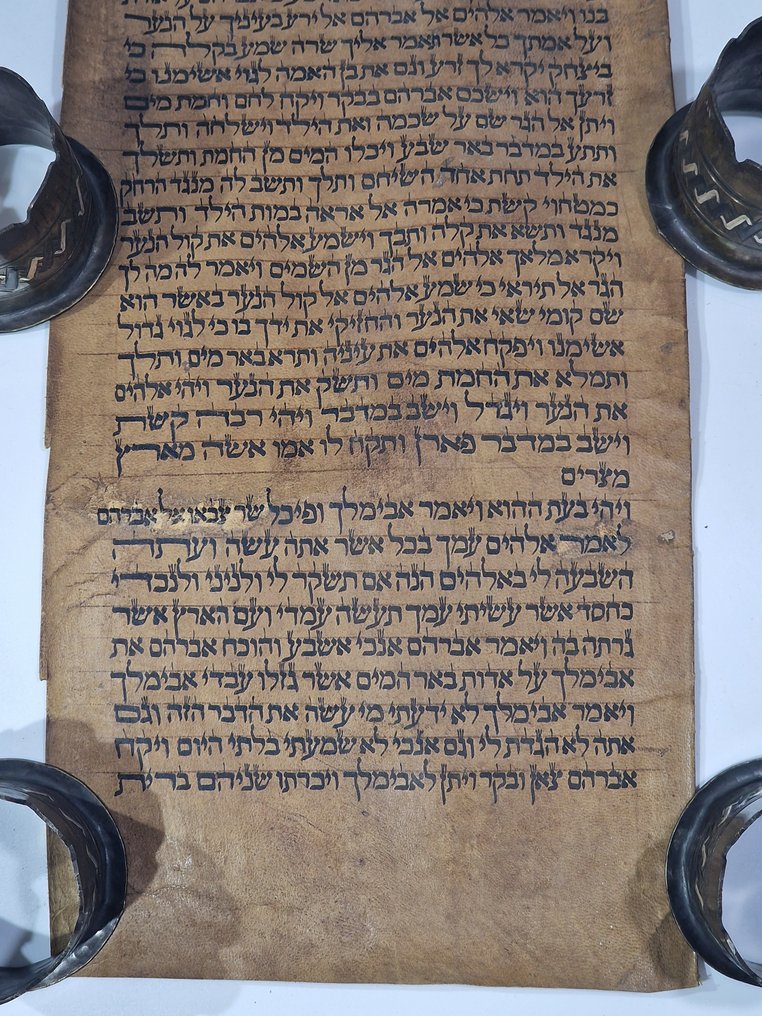 בנו ויאמר אלהים אל אברהם אל ירע בעיניך על הנער
ועל אמתך כל אשר תאמר אליך שרה שמע בקלה כי
ביצחק יקרא לך זרע וגם את בן האמה לגוי אשימנו כי
זרעך הוא וישכם אברהם בבקר ויקח לחם וחמת מים
ויתן אל הגר שם על שכמה ואת הילד וישלחה ותלך
ותתע במדבר באר שבע ויכלו המים מן החמת ותשלך
את הילד תחת אחד השיחם ותלך ותשב לה מנגד הרחק
כמטחוי קשת כי אמרה אל אראה במות הילד ותשב
מנגד ותשא את קלה ותבך וישמע אלהים את קול הנער
ויקרא מלאך אלהים אל הגר מן השמים ויאמר לה מה לך
הגר אל תיראי כי שמע אלהים אל קול הנער באשר הוא
שם קומי שאי את הנער והחזיקי את ידך בו כי לגוי גדול
אשימנו ויפקח אלהים את עיניה ותרא באר מים ותלך
ותמלא את החמת מים ותשק את הנער ויהי אלהים
את הנער ויגדל וישב במדבר ויהי רבה קשת
וישב במדבר פארן ותקח לו אמו אשה מארץ
מצרים
ויהי בעת ההוא ויאמר אבימלך ופיכל שר צבאו אל אברהם
לאמר אלהים עמך בכל אשר אתה עשה ועתה
השבעה לי באלהים הנה אם תשקר לי ולניני ולנכדי
כחסד אשר עשיתי עמך תעשה עמדי ועם הארץ אשר
גרתה בה ויאמר אברהם אנכי אשבע והוכח אברהם את
אבימלך על אדות באר המים אשר גזלו עבדי אבימלך
ויאמר אבימלך לא ידעתי מי עשה את הדבר הזה וגם
אתה לא הגדת לי וגם אנכי לא שמעתי בלתי היום ויקח
אברהם צאן ובקר ויתן לאבימלך ויכרתו שניהם ברית